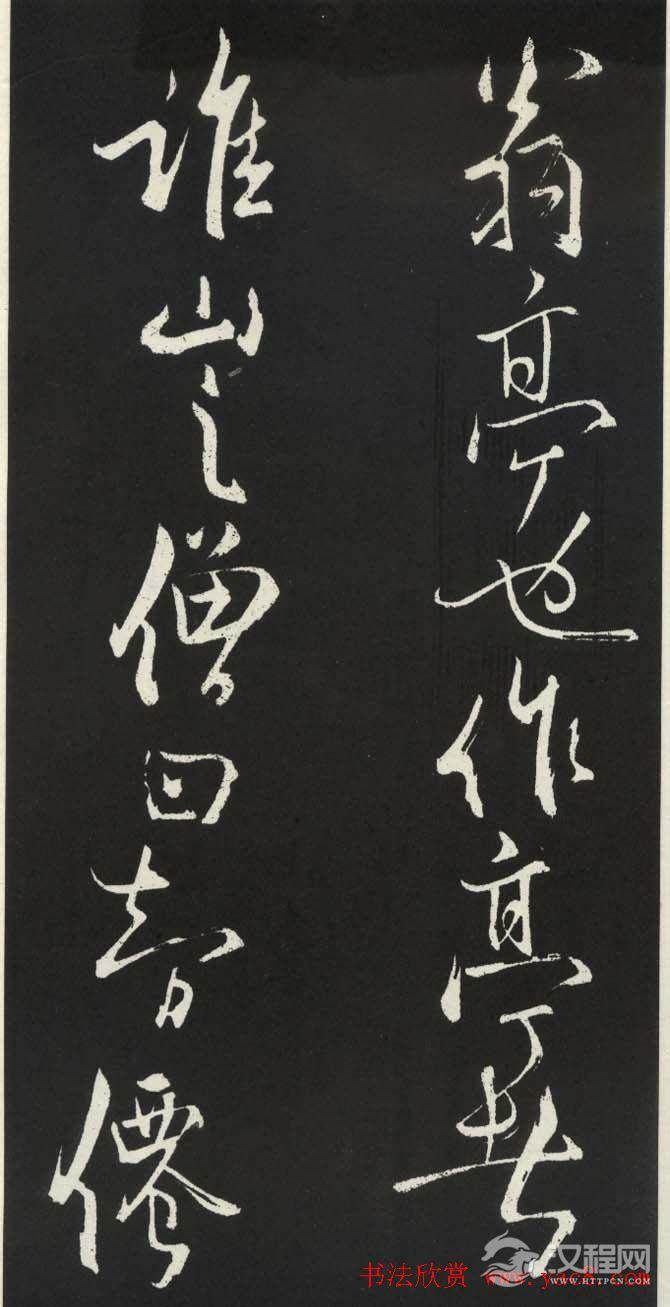 翁亭也作亭者
誰山之僧曰智僊
书法欣赏
汉程网
WWW.HTTPCN.COM